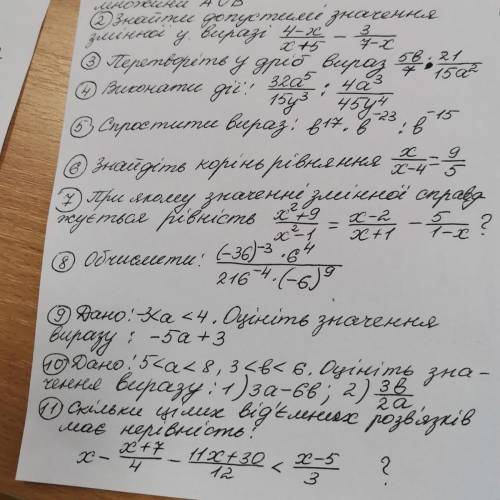 множини A∪B
② Знайти допустимі значення
змінної у виразі (4-x)/(x+5) - 3/(7-x)
③ Перетворіть у дріб вираз 5в/7 : 21/(15a²)
④ Виконати дії: 32a⁵/(15y³) : 4a³/(45y⁴)
⑤ Спростити вираз: в¹⁷ · в⁻²³ : в⁻¹⁵
⑥ Знайдіть корінь рівняння x/(x-4) = 9/5
⑦ При якому значенні змінної справд
жується рівність (x²+9)/(x²-1) = (x-2)/(x+1) - 5/(1-x) ?
⑧ Обчислети: ((-36)⁻³ · 6⁴)/(216⁻⁴ · (-6)⁹)
⑨ Дано: -3<a<4. Оцініть значення
виразу: -5a+3
⑩ Дано: 5<a<8, 3<в<6. Оцініть зна-
чення виразу: 1) 3a-6в; 2) 3в/2a
⑪ Скільки цілих від'ємних розв'язків
має нерівність:
x - (x+7)/4 - (11x+30)/12 < (x-5)/3 ?